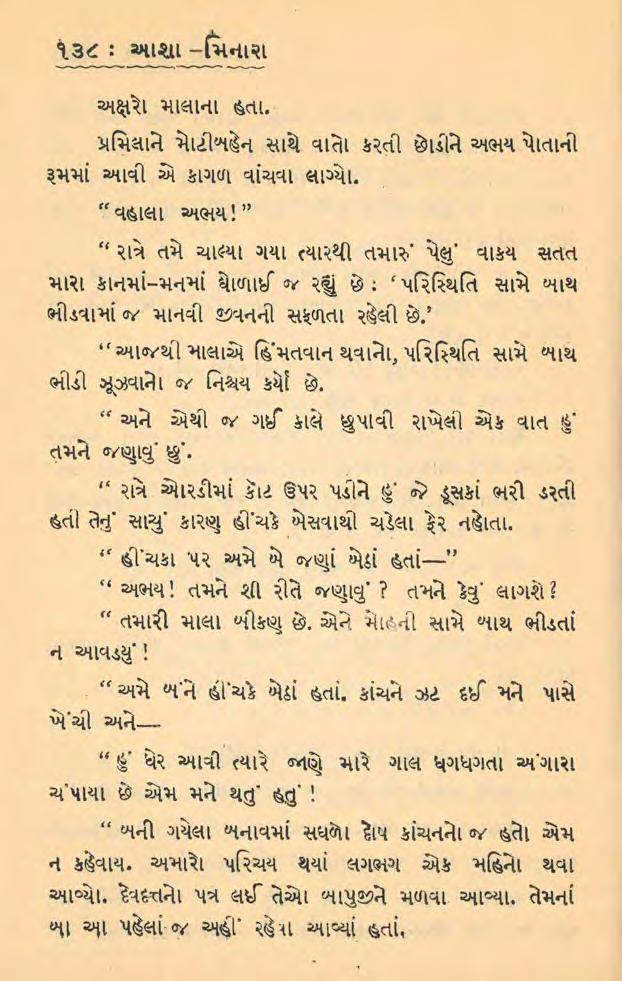 ૧૩૮ : આશા-મિનારા
અક્ષરો માલાના હતા.
પ્રમિલાને મોટીબહેન સાથે વાતો કરતી છોડીને અભય પોતાની
રૂમમાં આવી એ કાગળ વાંચવા લાગ્યો.
“વહાલા અભય!”
“રાત્રે તમે ચાલ્યા ગયા ત્યારથી તમારું પેલું વાક્ય સતત
મારા કાનમાં-મનમાં ઘોળાઈ જ રહ્યું છે : ‘પરિસ્થિતિ સામે બાથ
ભીડવામાં જ માનવી જીવનની સફળતા રહેલી છે.’
“આજથી માલાએ હિંમતવાન થવાનો, પરિસ્થિતિ સામે બાથ
ભીડી ઝૂઝવાનો જ નિશ્ચય કર્યો છે.
“અને એથી જ ગઈ કાલે છુપાવી રાખેલી એક વાત હું
તમને જણાવું છું.
“રાત્રે ઓરડીમાં કોટ ઉપર પડીને હું જે ડૂસકાં ભરી ડરતી
હતી તેનું સાચું કારણ હીંચકે બેસવાથી ચડેલા ફેર નહોતા.
“હીંચકા પર અમે બે જણાં બેઠાં હતાં—”
“અભય! તમને શી રીતે જણાવું? તમને કેવું લાગશે?
“તમારી માલા બીકણ છે. એને મોહની સામે બાથ ભીડતાં
ન આવડ્યું!
“અમે બંને હીંચકે બેઠાં હતાં. કાંચને ઝટ દઈ મને પાસે
ખેંચી અને—
“હું ઘેર આવી ત્યારે જાણે મારે ગાલ ધગધગતા અંગારા
ચંપાયા છે એમ મને થતું હતું!
“બની ગયેલા બનાવમાં સઘળો દોષ કાંચનનો જ હતો એમ
ન કહેવાય. અમારો પરિચય થયાં લગભગ એક મહિનો થવા
આવ્યો. દેવદત્તનો પત્ર લઈ તેઓ બાપુજીને મળવા આવ્યા. તેમનાં
બા આ પહેલાં જ અહીં રહેવા આવ્યાં હતાં.